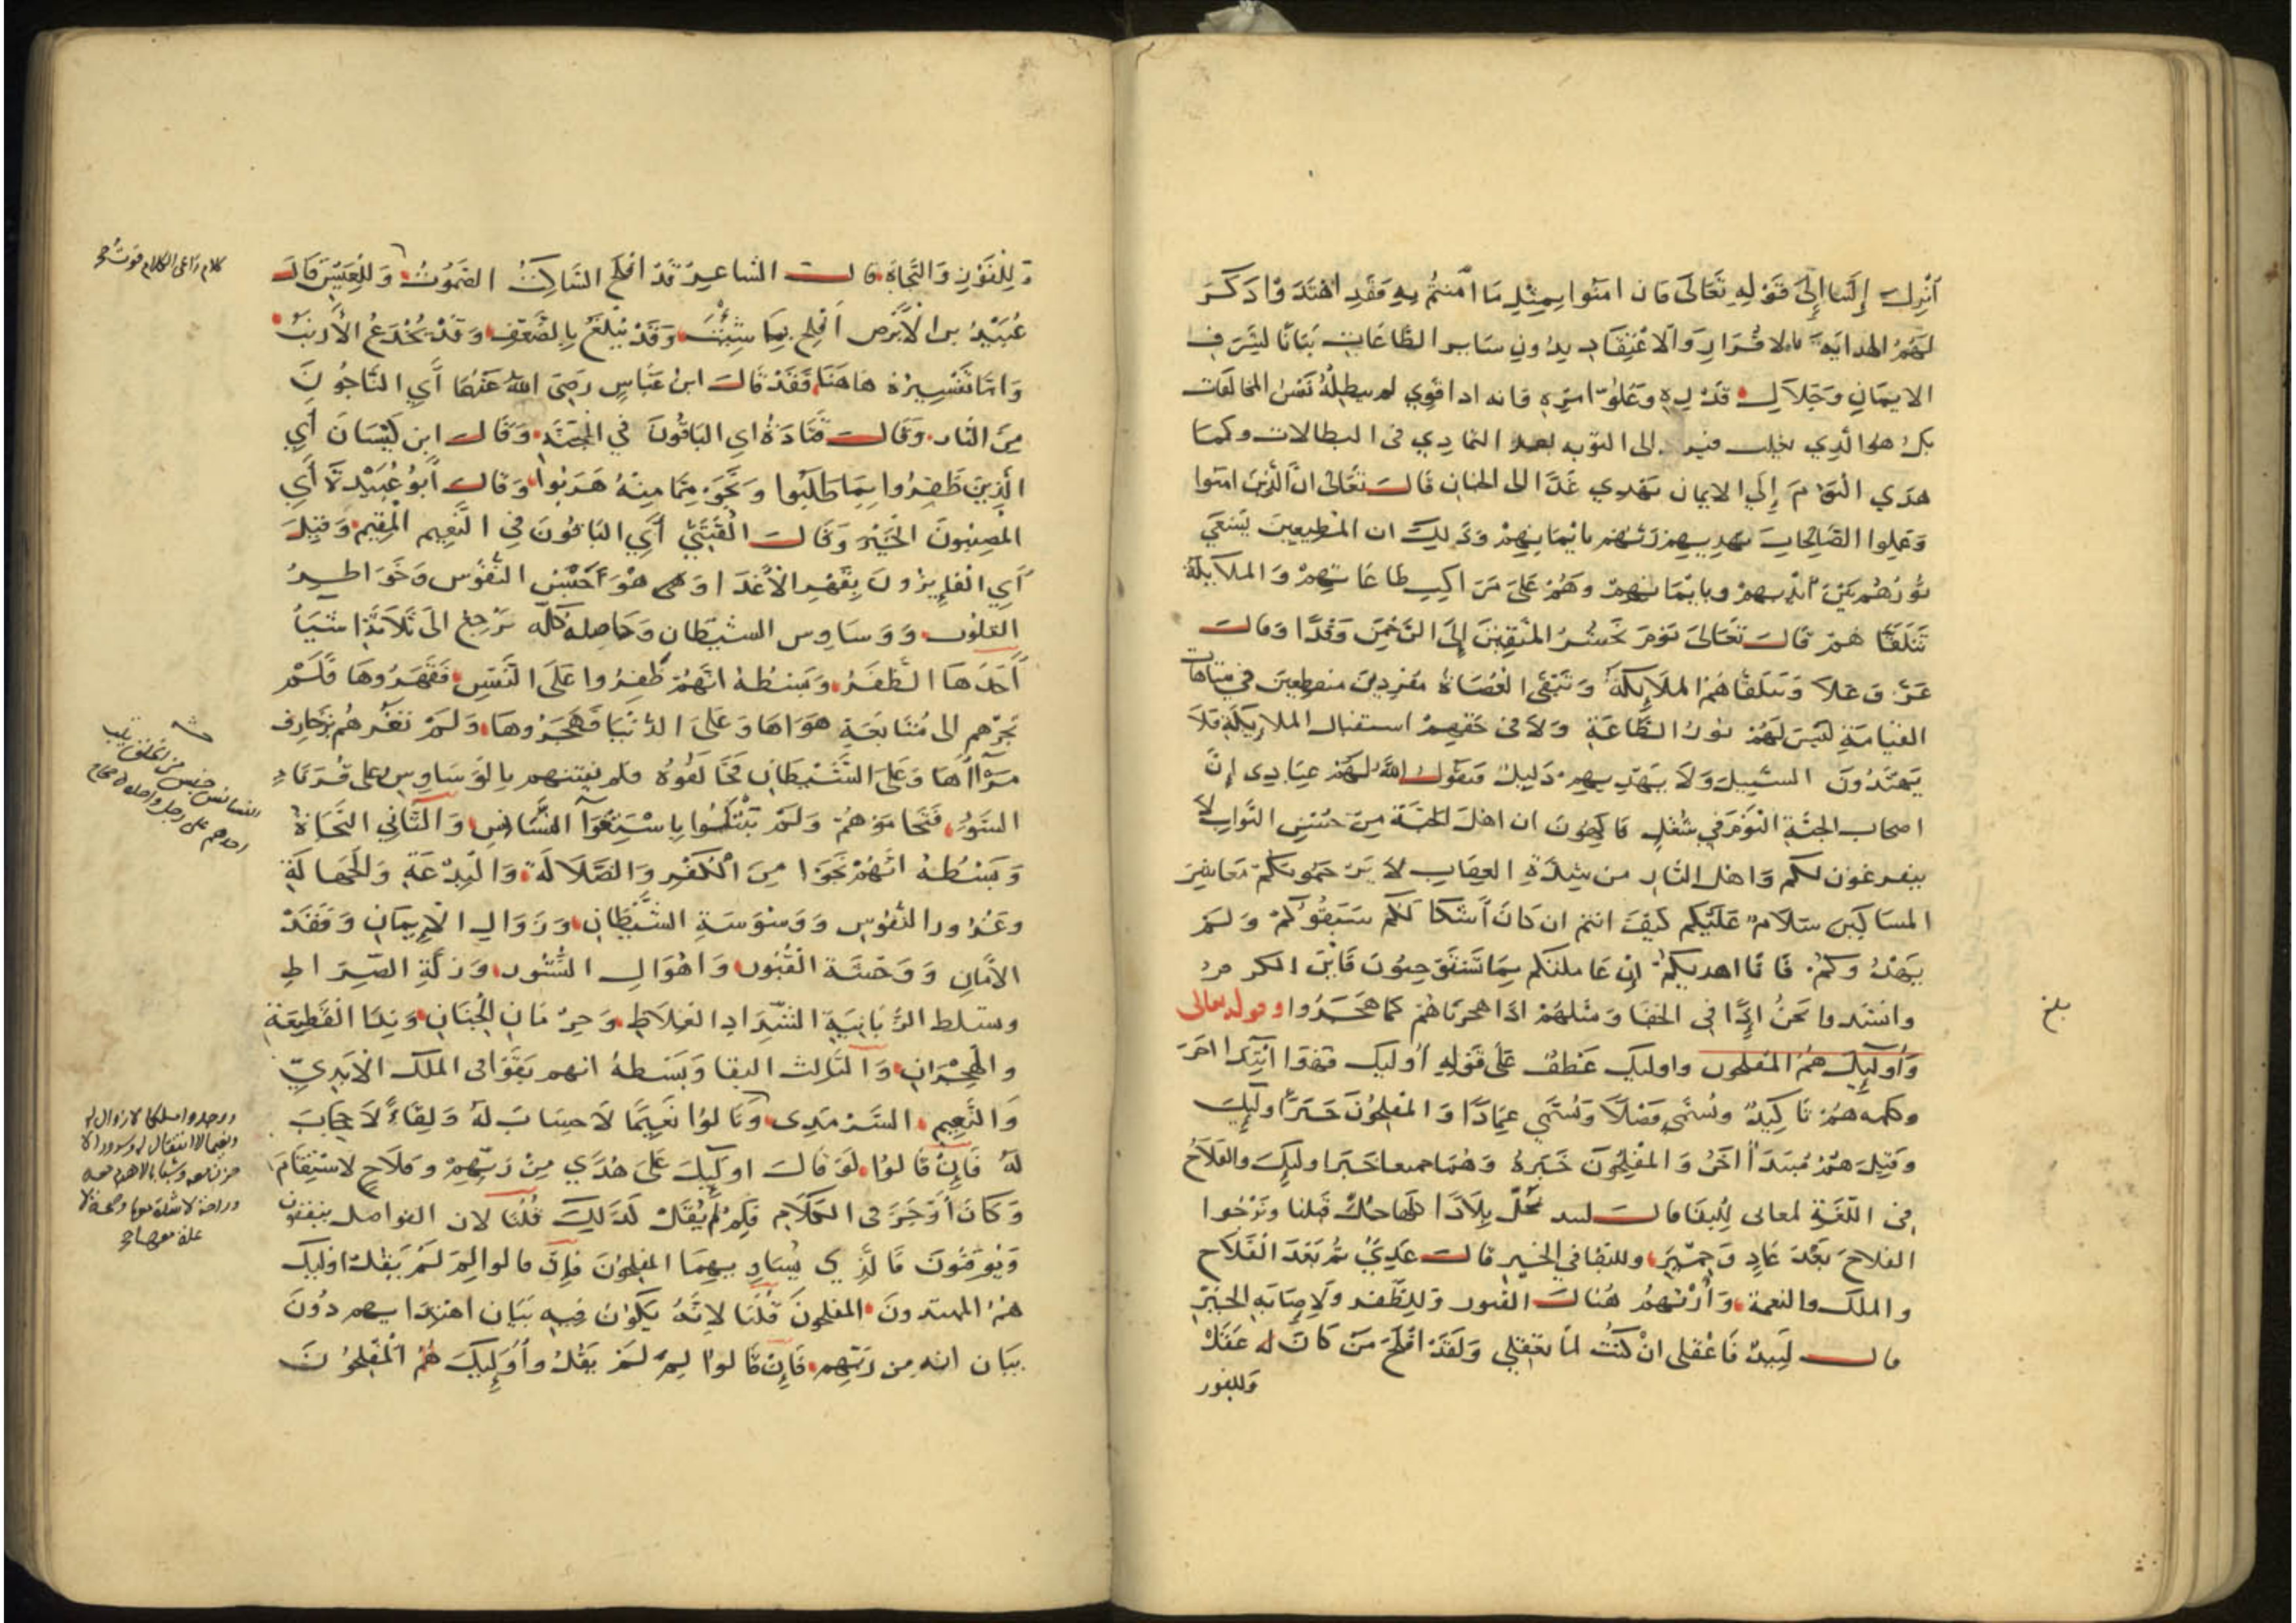 أنزل إلينا إلى قوله تعالى فان امنوا بمثل ما امنتم به فقد اهتدوا ذكر
لهم الهداية بالاقرار والاعتقاد بدون ساير الطاعات بيانا لشرف
الايمان وجلال قدره وعلو امره فانه اذا قوي لم يبطله نفس المخالفات
بل هو الذي إلى التوبة بعد التمادي في البطالات وكما
هدي اليوم إلي الايمان يهدي غدا الى الجنان قال تعالى ان الذين امنوا
وعملوا الصالحات يهديهم ربهم بايمانهم وذلك ان المطيعين يسعى
نورهم بين أيديهم وبايمانهم وهم على مراكب طاعاتهم والملايكة
تتلقاهم قال تعالى يوم نحشر المتقين إلى الرحمن وفدا وقال
عز وعلا وتتلقاهم الملايكة وتبقى العصاة مفردين منقطعين في متاهات
القيامة ليس لهم نور الطاعة ولا في حقهم استقبال الملايكة فلا
يهتدون السبيل ولا يهديهم دليل فيقول الله لهم عبادي إن
اصحاب الجنة اليوم في شغل فاكهون ان اهل الجنة من حسن الثواب لا
يتفرغون لكم واهل النار من شدة العقاب لا يرحمونكم معاشر
المساكين سلام عليكم كيف انتم ان كان أشكالكم سبقوكم ولم
يهدوكم فانا اهديكم إن عاملتكم بما تستوجبون فاين الكرم
وانشدوا نحن إذا في الجفا ومثلهم اذا هجرناهم كما هجروا وقوله تعالى
وأوليك هم المفلحون واوليك عطف على قوله أوليك فهو ابتدا اخر
وكلمة هم تاكيد وتسمى فصلا وتسمى عمادا والمفلحون خبر اوليك
وقيل هم مبتدأ اخر والمفلحون خبره وهما جميعا خبر اوليك والفلاح
في اللغة لمعان للبقا قال لبيد نحل بلادا كلها حل قبلنا ونرجوا
الفلاح بعد عاد وحمير وللبقا في الخير قال عدي ثم بعد الفلاح
والملك والنعمة وارتهم هناك القبور وللظفر ولاصابة الخير
قال لبيد فاعقلي ان كنت لما تعقلي ولقد افلح من كان له عقل
وللفوز
بلغ
وللفوز والنجاة قال الشاعر قد افلح الساكت الصموت وللعيش قال
عبيد بن الابرص افلح بما شئت وقد يبلغ بالضعف وقد يخدع الأريب
واما تفسيره هاهنا فقد قال ابن عباس رضي الله عنهما أي الناجون
من النار وقال قتادة اي الباقون في الجنة وقال ابن كيسان أي
الذين ظفروا بما طلبوا ونجوا مما منه هربوا وقال أبو عبيدة أي
المصيبون الخير وقال القتبي أي الباقون في النعيم المقيم وقيل
أي الفايزون بقهر الأعدا وهي هواجس النفوس وخواطر
القلوب ووساوس الشيطان وحاصله كله يرجع الى ثلاثة اشيا
أحدها الظفر وبسطه انهم ظفروا على النفس فقهروها فلم
تجرهم الى متابعة هواها وعلى الدنيا فهجروها ولم تغرهم بزخارف
مرآاها وعلى الشيطان فخالفوه فلم يفتنهم بالوساوس وعلى قرناء
السوء فتحاموهم ولم يبتلوا باستغوآ النسناس والثاني النجاة
وبسطه انهم نجوا من الكفر والضلالة والبدعة والجهالة
وغرور النفوس ووسوسة الشيطان وزوال الايمان وفقد
الأمان ووحشة القبور واهوال النشور وزلة الصراط
وتسلط الزبانية الشداد الغلاظ وحرمان الجنان وندا القطيعة
والهجران والثالث البقا وبسطه انهم بقوا في الملك الابدي
والنعيم السرمدي ونالوا نعيما لا حساب له ولقاء لا حجاب
له فان قالوا لو قال اوليك على هدي من ربهم وفلاح لاستقام
وكان أوجز في الكلام فلم لم يقل لذلك قلنا لان الفواصل ينفقون
ويوقنون فالذي يساويهما المفلحون فان قالوا لم لم يقل اوليك
هم المهتدون المفلحون قلنا لانه يكون فيه بيان اهتدايهم دون
بيان انه من ربهم فإن قالوا لم لم يقل وأوليك هم المفلحون
كلام راعي الكلام قوت صح
النسناس جنس من الخلق يثب
احدهم على رجل واحدة صحاح